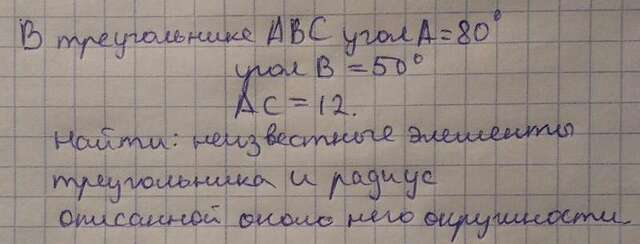 В треугольнике ABC угол A=80°
угол B=50°
AC=12.
Найти: неизвестные элементы
треугольника и радиус
описанной около него окружности.